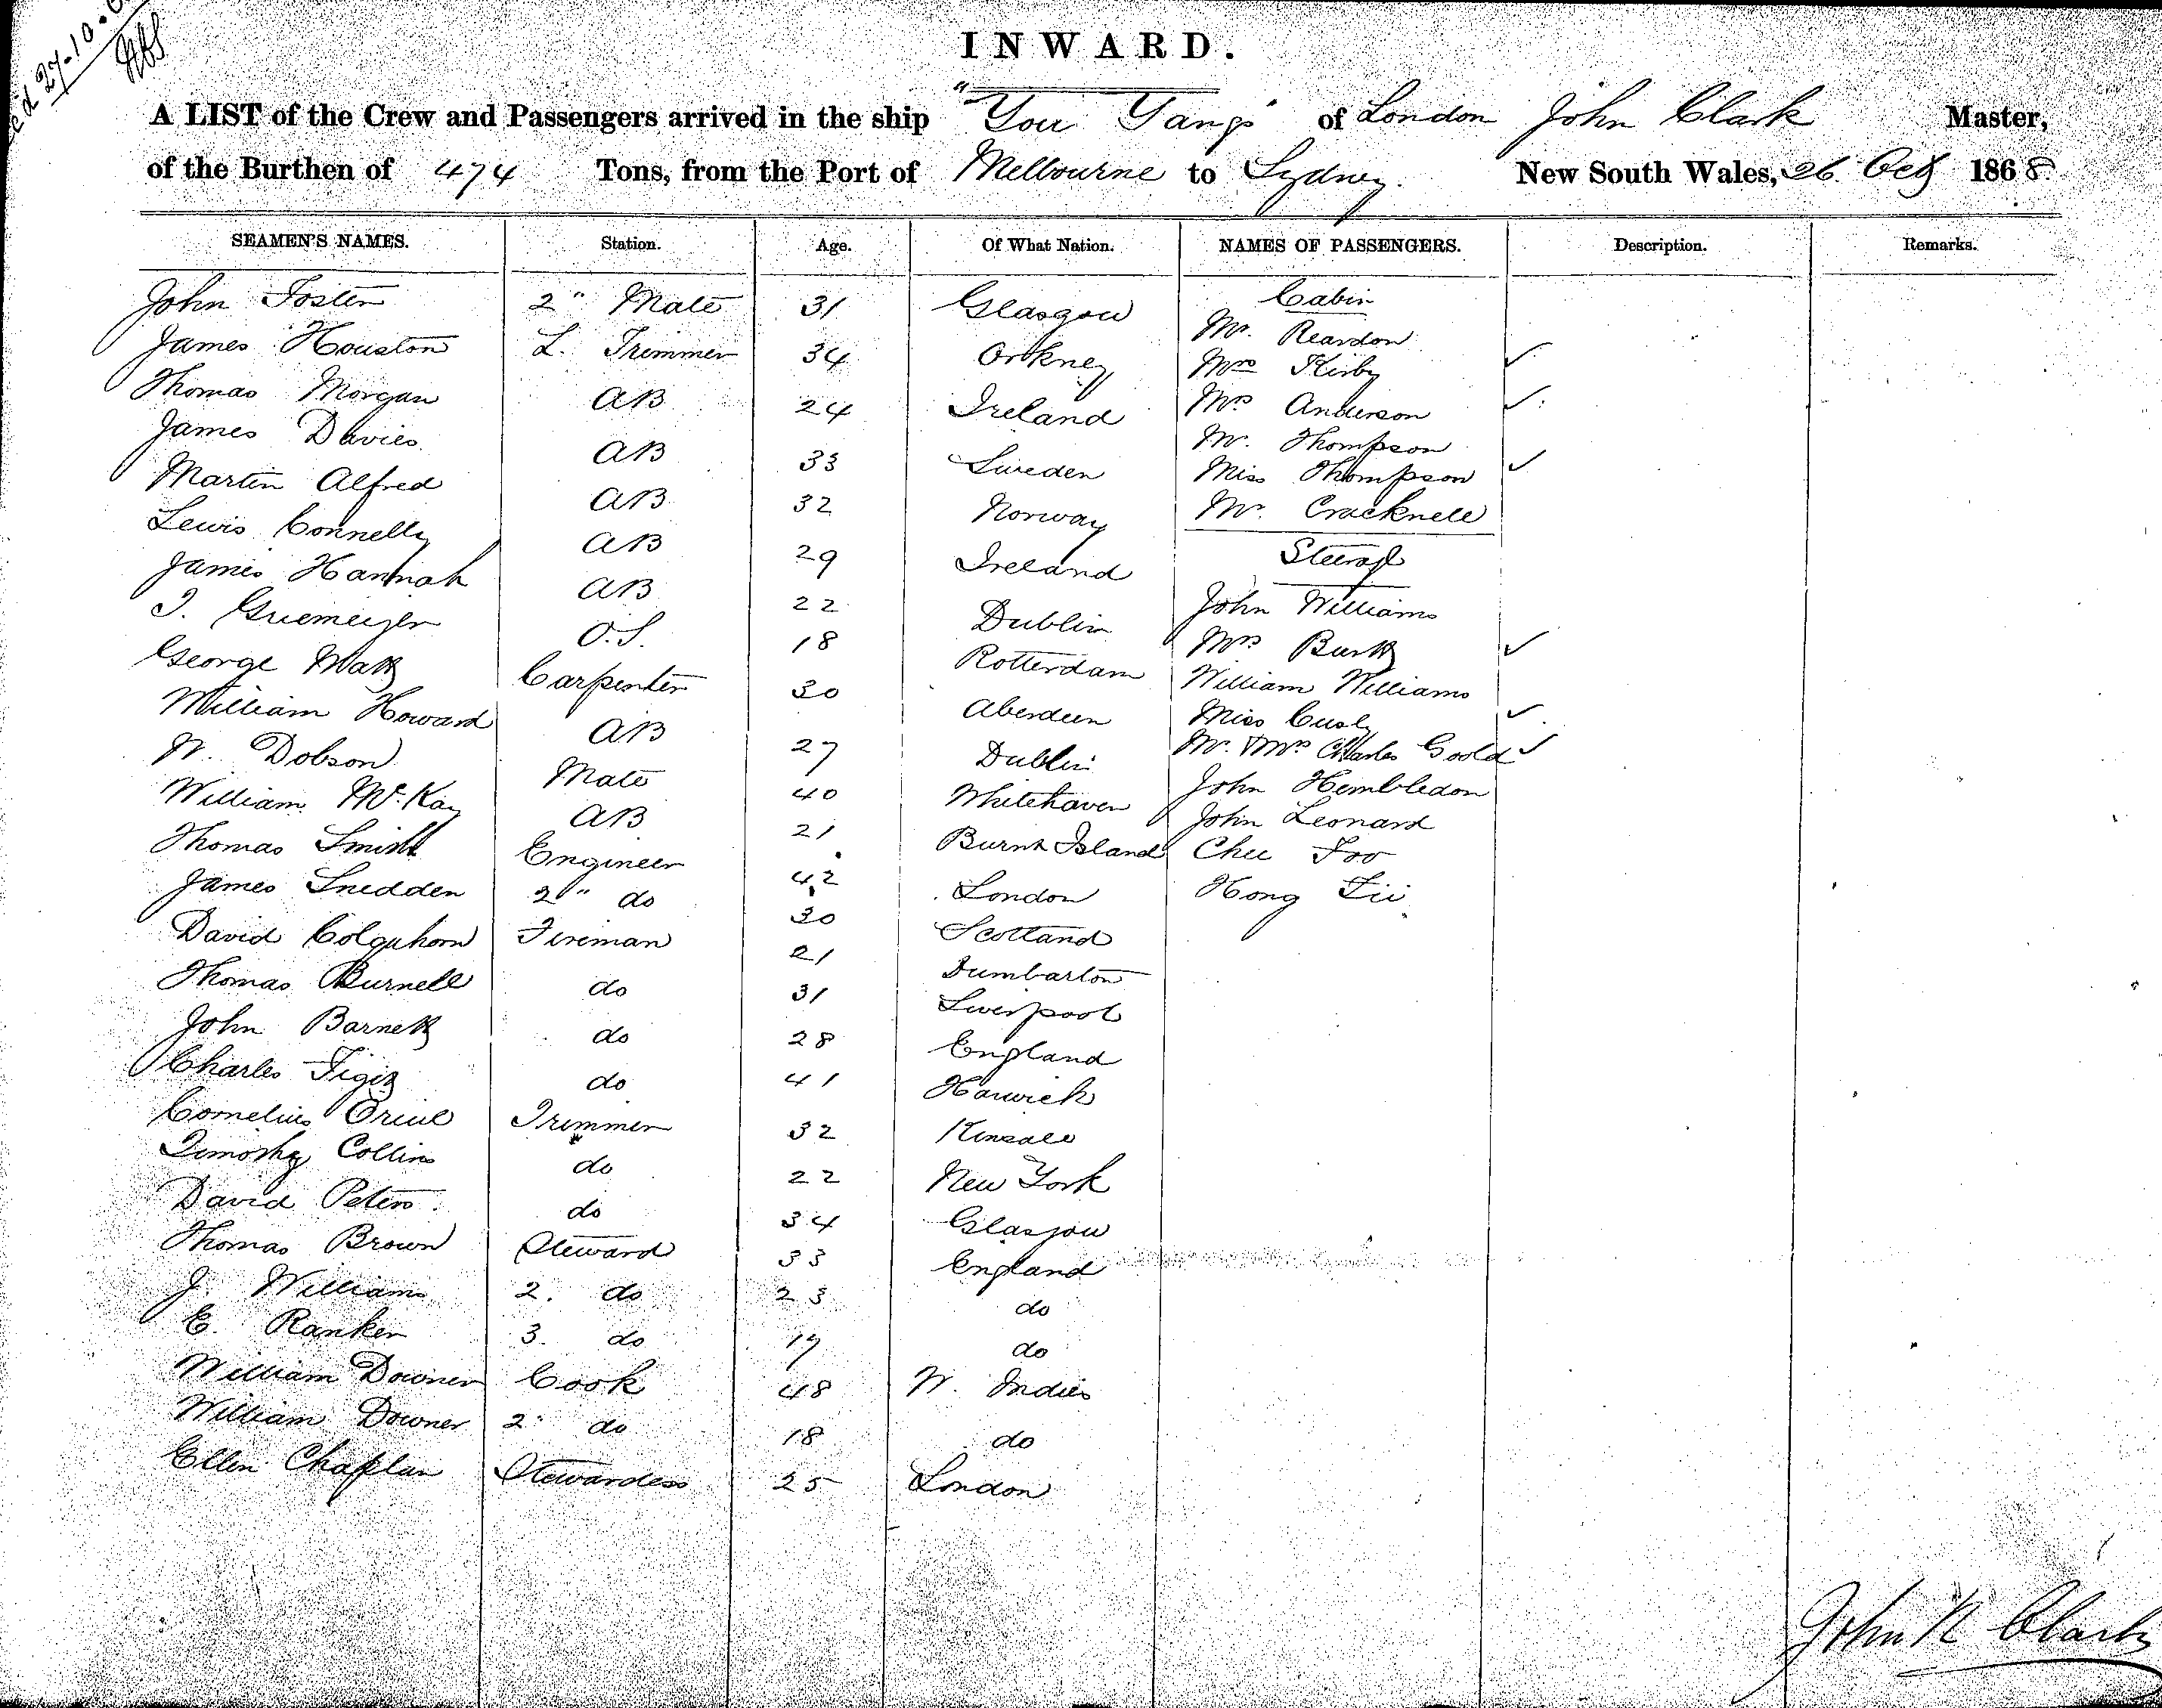 27.10.6
INWARD.
A LIST of the Crew and Passengers arrived in the ship "You Yangs" of London John Clark Master,
of the Burthen of 474 Tons, from the Port of Melbourne to Sydney. New South Wales, 26 Oct 1868.
SEAMEN'S NAMES. Station. Age. Of What Nation. NAMES OF PASSENGERS. Description. Remarks.
Cabin
John Foster 2" Mate 31 Glasgow Mr. Reardon
James Houston L. Trimmer 34 Orkney Mrs Kirby ✓
Thomas Morgan AB 24 Ireland Mrs Anderson ✓
James Davies AB 33 Sweden Mr. Thompson
Miss Thompson ✓
Martin Alfred AB 32 Norway Mr. Cracknell
Lewis Connelly AB 29 Ireland Steerage
James Hannah AB 22 Dublin John Williams
O.S. 18 Rotterdam Mrs Burtt ✓
George Watt Carpenter 30 Aberdeen William Williams
William Howard AB 27 Dublin Miss ✓
W. Dobson Mate 40 Whitehaven Mr. & Mrs Charles Goold ✓
William McKay AB 21 Burnt Island John Hembledon
Thomas Smith Engineer 42 London John Leonard
James Snedden 2" do 30 Scotland Chee Foo
David Colquhorn Fireman 21 Dumbarton Hong
Thomas Burnell do 31 Liverpool
John Barnett do 28 England
Charles do 41 Harwich
Cornelius Trimmer 32 Kinsale
Timothy Collins do 22 New York
David Peters do 34 Glasgow
Thomas Brown Steward 33 England
J. Williams 2. do 23 do
E. Ranken 3. do 19 do
William Downer Cook 48 W. Indies
William Downer 2" do 18 do
Ellen Chaplan Stewardess 25 London
John N Clark